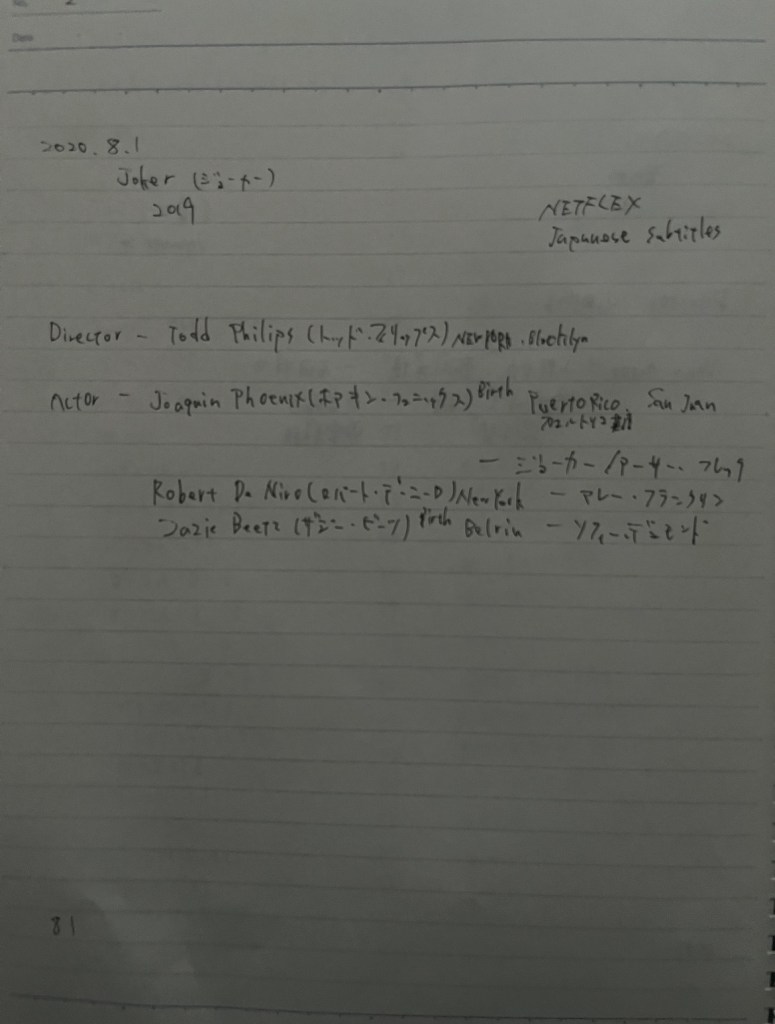 No. 2
Date
2020.8.1
Joker (ジョーカー)
2019
NETFLEX
Japanese subtitles
Director - Todd Philips (トッド・フィリップス) NEWYORK.
Actor - Joaquin Phoenix (ホアキン・フェニックス) Birth Puerto Rico, San Juan
プエルトリコ
- ジョーカー/アーサー・フレック
Robert De Niro (ロバート・デ・ニーロ) New York - マレー・フランクリン
Zazie Beetz (ザジー・ビーツ) Birth Belrin - ソフィー・デュモンド
81